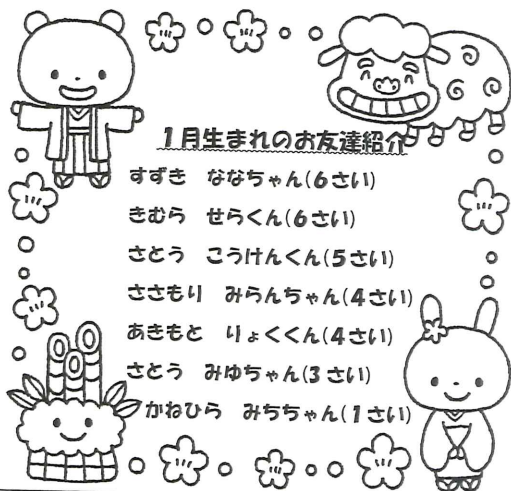 1月生まれのお友達紹介
すずき ななちゃん(6さい)
きむら せらくん(6さい)
さとう こうけんくん(5さい)
ささもり みらんちゃん(4さい)
あきもと りょくくん(4さい)
さとう みゆちゃん(3さい)
かねひら みちちゃん(1さい)